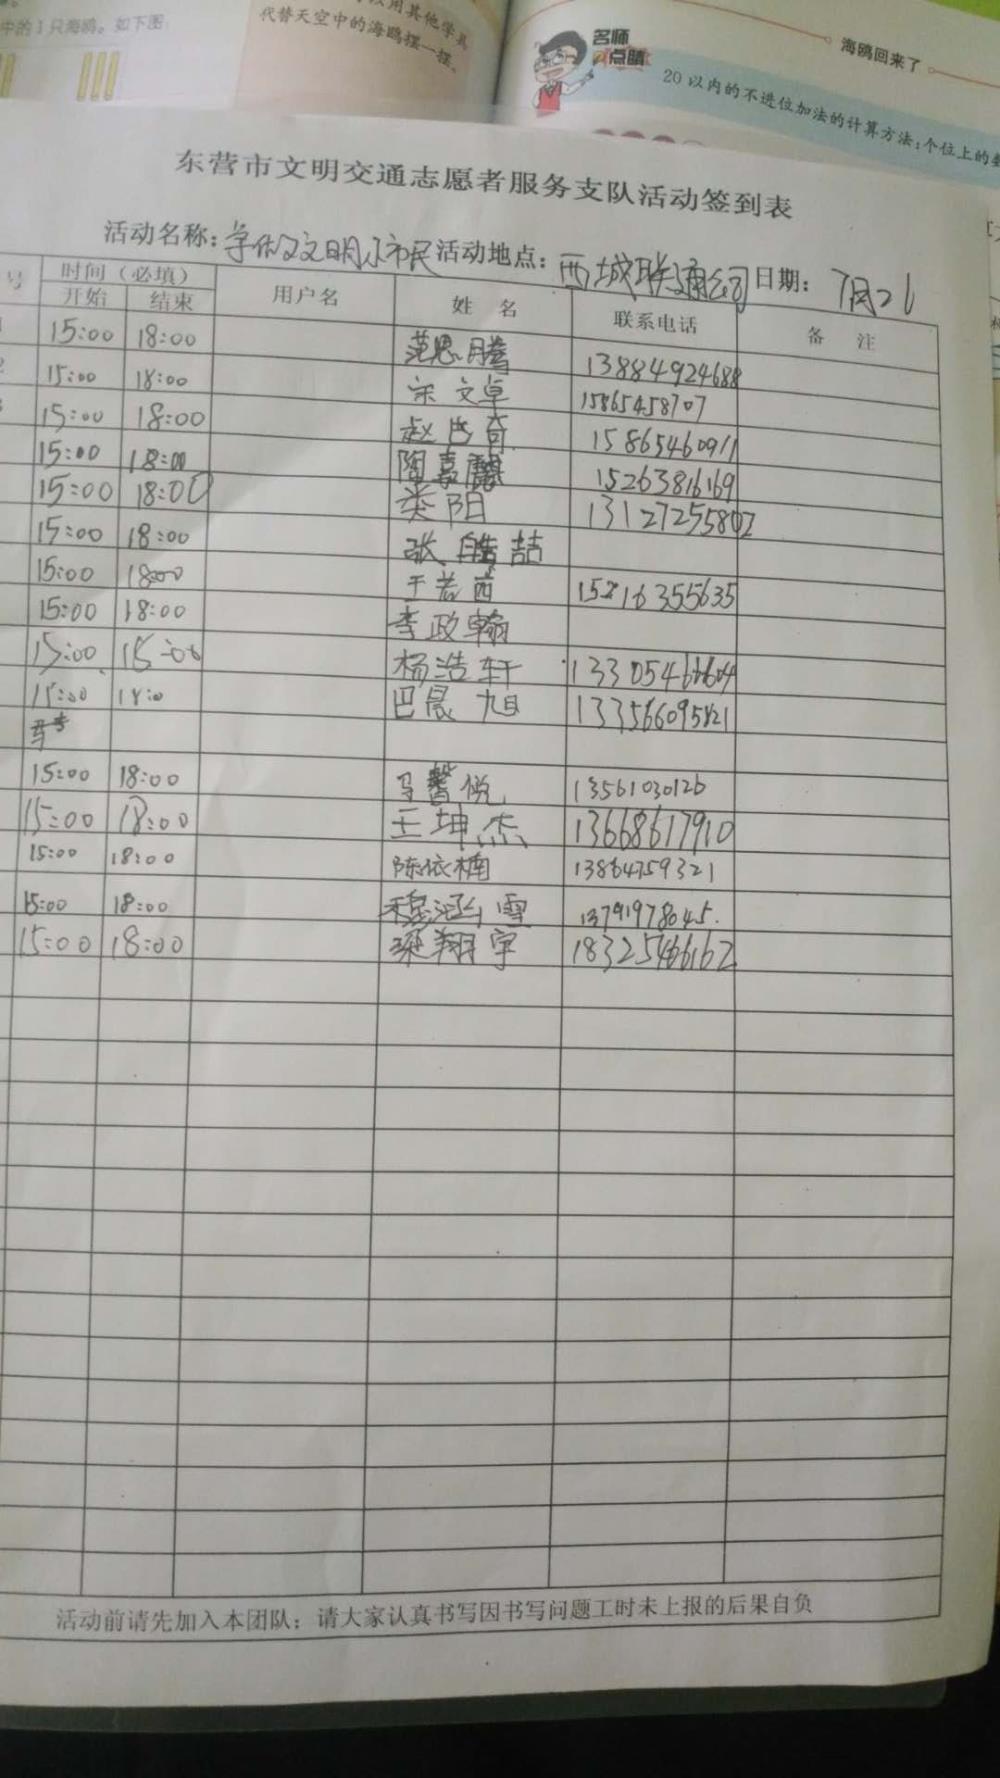 中的1只海鸥。如下图
以用其他学具
代替天空中的海鸥摆一摆。
名师
点睛
海鸥回来了
20以内的不进位加法的计算方法:个位上的
东营市文明交通志愿者服务支队活动签到表
活动名称:学做文明小市民 活动地点:西城联通公司 日期:7月21
号 时间(必填) 用户名 姓 名 联系电话 备 注
开始 结束
15:00 18:00 范思腾 13884924688
15:00 18:00 宋文卓 15865458707
15:00 18:00 赵 奇 15865460911
15:00 18:00 陶嘉麒 15263816169
15:00 18:00 娄阳 13127255802
15:00 18:00 张皓喆
15:00 18:00 王若茜 15216355635
15:00 18:00 李政翰
15:00 15:00 杨浩轩 13305466604
15:00 18:0 巴晨旭 133566095821
15:00 18:00 马馨悦 13561030120
15:00 18:00 王坤杰 13668617910
15:00 18:00 陈依楠 13864759321
15:00 18:00 穆涵雪 13791978045.
15:00 18:00 梁翔宇 18325466162
活动前请先加入本团队;请大家认真书写因书写问题工时未上报的后果自负